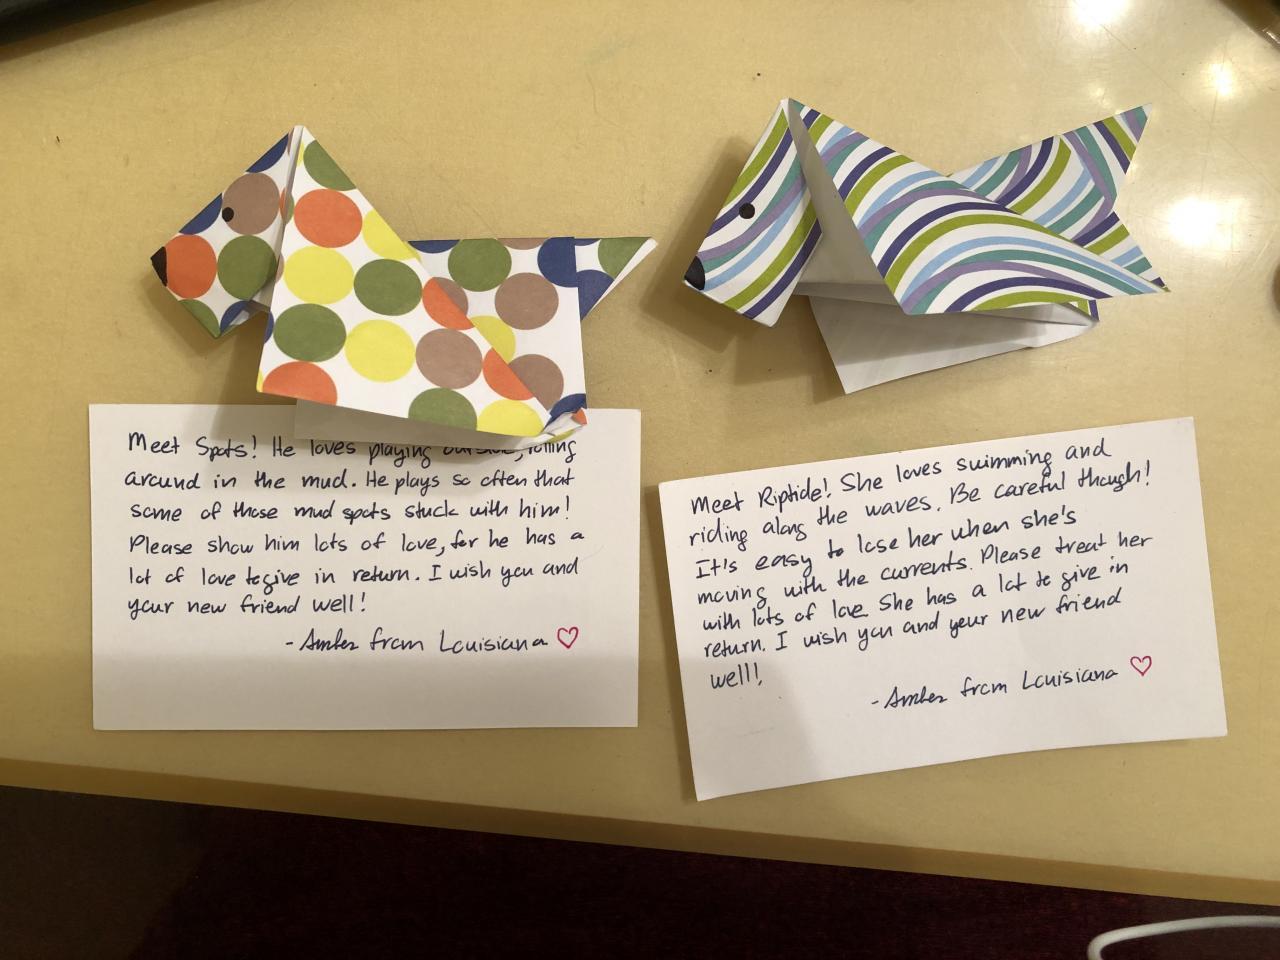 Meet Spots! He loves playing outside, rolling
around in the mud. He plays so often that
some of those mud spots stuck with him!
Please show him lots of love, for he has a
lot of love to give in return. I wish you and
your new friend well!
- Amber from Louisiana ♡
Meet Riptide! She loves swimming and
riding along the waves. Be careful though!
It's easy to lose her when she's
moving with the currents. Please treat her
with lots of love. She has a lot to give in
return. I wish you and your new friend
well!
- Amber from Louisiana ♡